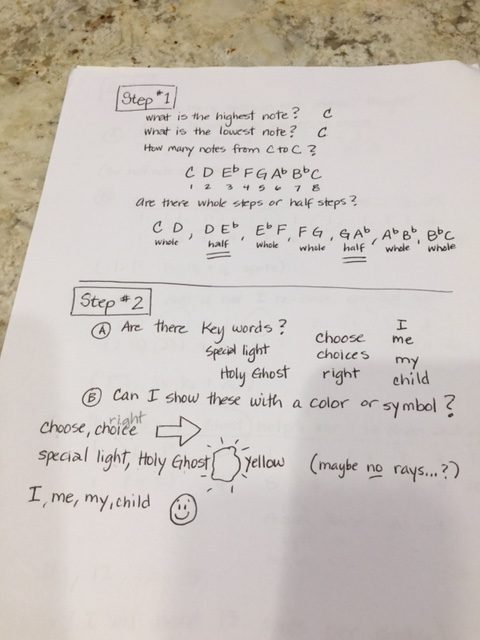 Step #1
What is the highest note? C
What is the lowest note? C
How many notes from C to C?
C D Eb F G Ab Bb C
1 2 3 4 5 6 7 8
are there whole steps or half steps?
C D, D Eb, Eb F, F G, G Ab, Ab Bb, Bb C
whole half whole whole half whole whole
Step #2
A Are there Key words?
special light
Holy Ghost
choose
choices
right
I
me
my
child
B Can I show these with a color or symbol?
choose, choice right
special light, Holy Ghost yellow (maybe no rays...?)
I, me, my, child